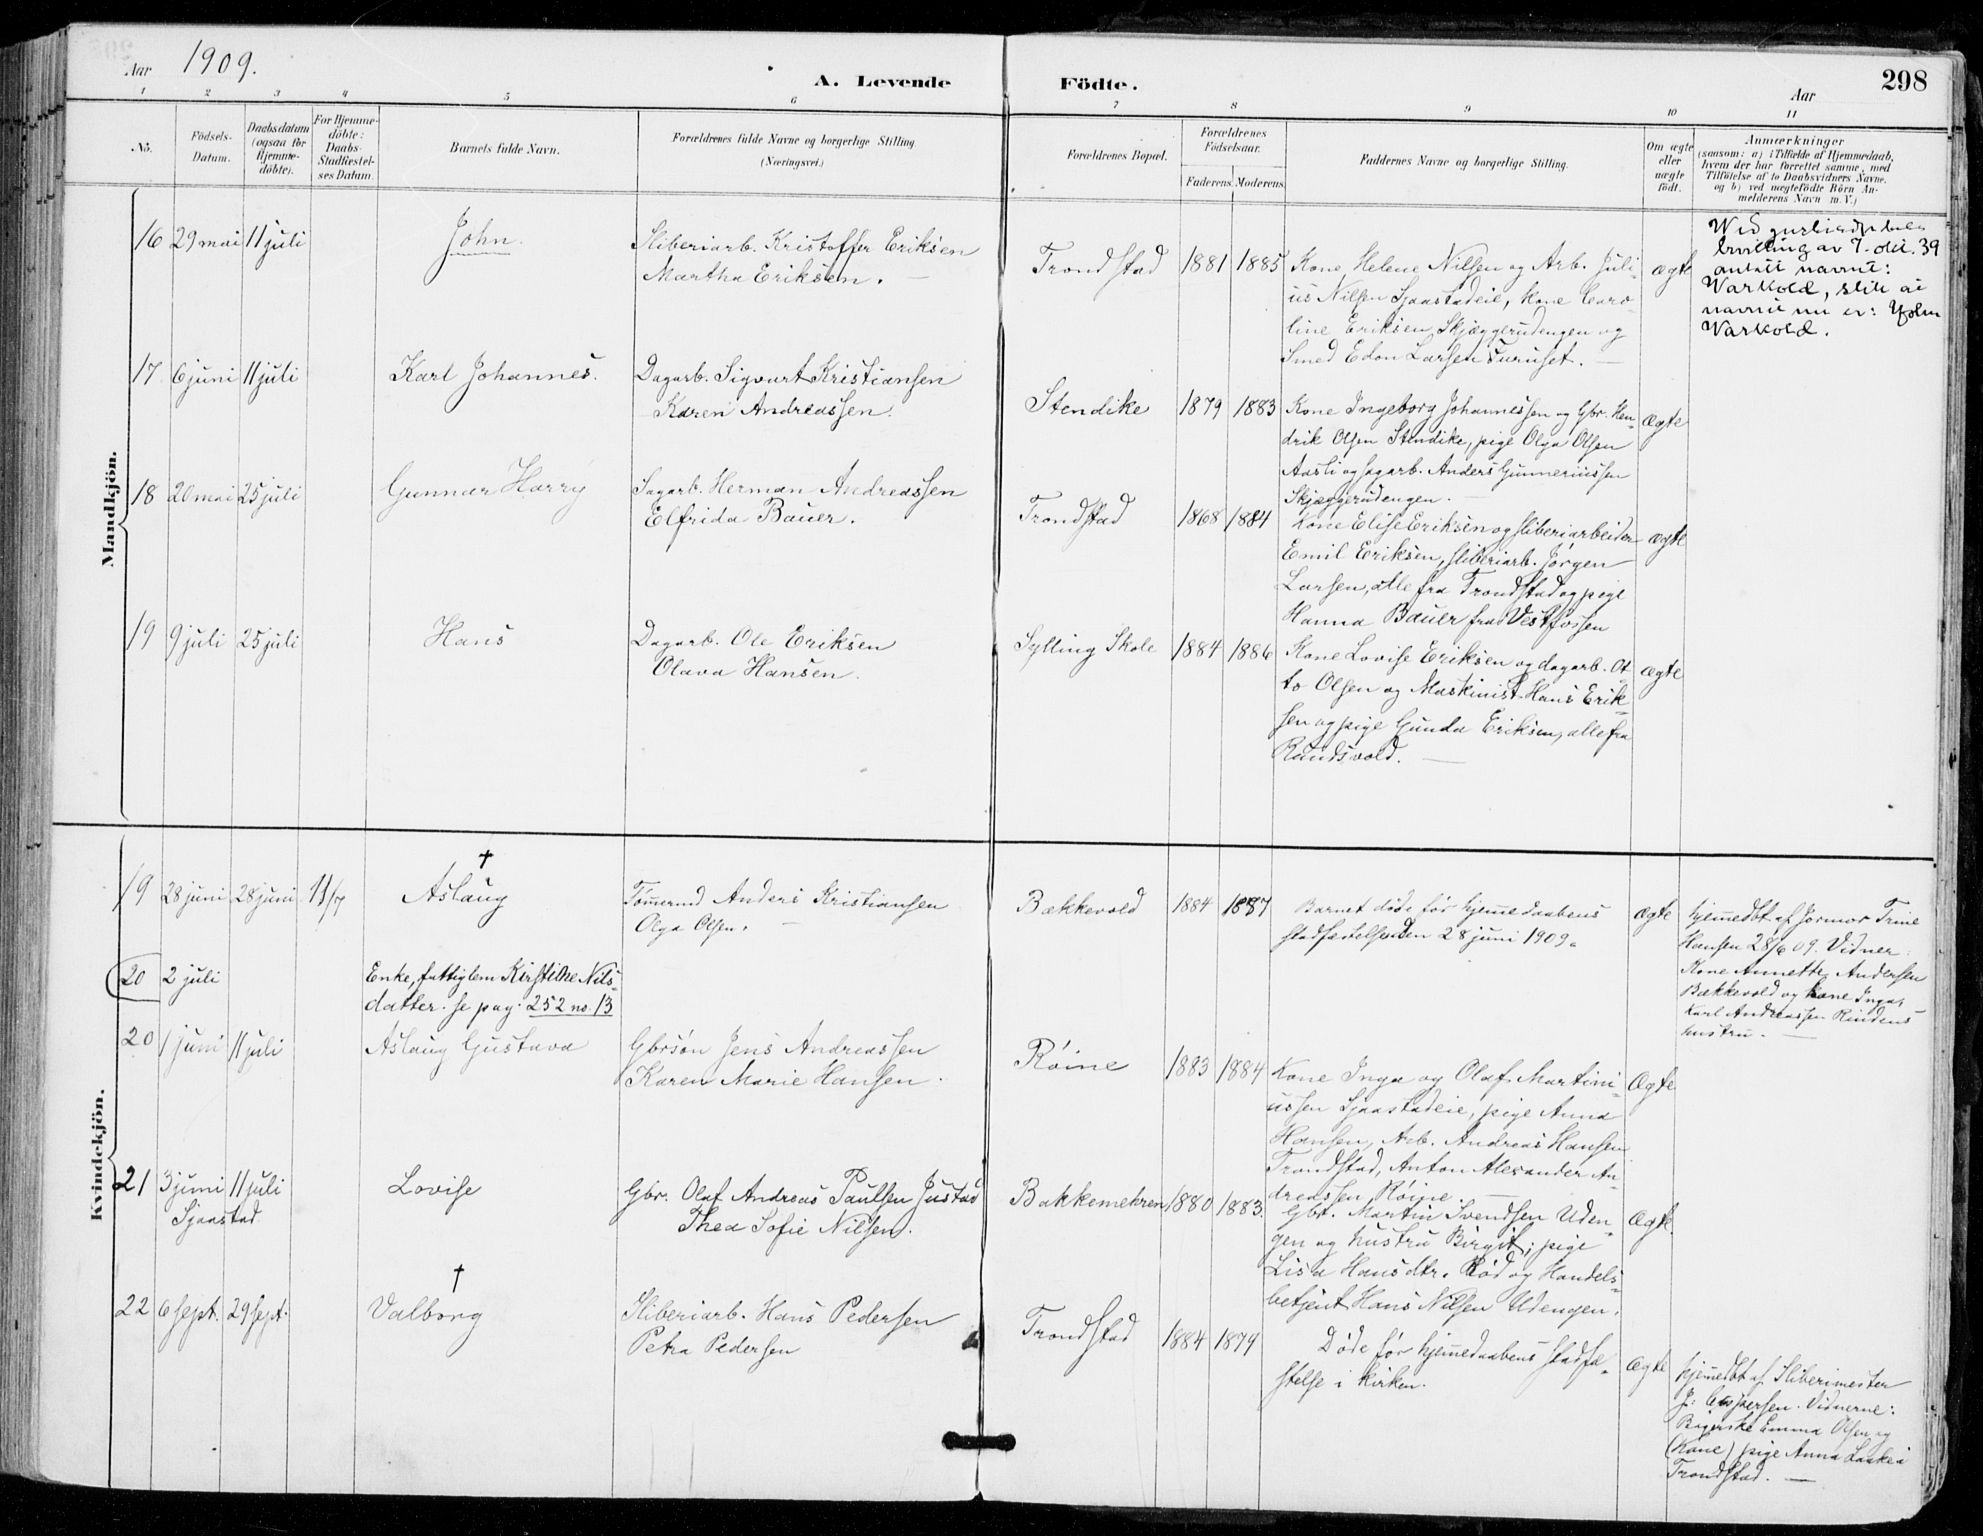 Aar 1909.
A. Levende Födte.
Aar
298
1 2 3 4 5 6 7 8 9 10 11
No.
Födsels-
Datum.
Daabsdatum
(ogsaa for
Hjemme-
döbte).
For Hjemme-
döbte:
Daabs-
Stadfæstel-
ses Datum.
Barnets fulde Navn.
Forældrenes fulde Navne og borgerlige Stilling
(Næringsvei.)
Forældrenes Bopæl.
Forældrenes
Födselsaar.
Faderens. Moderens.
Faddernes Navne og borgerlige Stilling.
Om ægte
eller
uægte
födt.
Anmærkninger
(saasom: a) i Tilfælde af Hjemmedaab,
hvem der har forrettet samme, med
Tilföielse af to Daabsvidners Navne.
og b) ved uægtefödte Börn An-
melderens Navn m. V.)
Mandkjön.
16 29 mai 11 juli
John.
Sliberiarb. Kristoffer Eriksen
Martha Eriksen.
Trondstad 1881 1885
Kone Helene Nilsen og Arb. Juli-
us Nilsen Sjaastadeie, kone Caro-
line Eriksen, Skjæggerudengen og
Smed Edon Larsen Furuset.
ægte
av 7. okt. 39
antatt navnet:
Warkold, slik at
navnet nu er: John
Warkold.
17 6 juni 11 juli
Karl Johannes.
Dagarb. Sigvart Kristiansen
Karen Andreassen.
Stendike 1879 1883
Kone Ingeborg Johannessen og Gbr. Hen-
drik Olsen Stendike, pige Olga Olsen
Aasli og sagarb. Anders Gunneriussen
Skjæggerudengen.
ægte
18 20 mai 25 juli
Gunnar Harry
Sagarb. Herman Andreassen
Elfrida Bauer.
Trondstad 1868 1884
Kone Elise Eriksen og sliberiarbeider
Emil Eriksen, sliberiarb. Jörgen
Larsen, alle fra Trondstad og pige
Hanna Bauer fra Vestfossen
ægte
19 9 juli 25 juli
Hans
Dagarb. Ole Eriksen
Olava Hansen.
Sylling Skole 1884 1886
Kone Lovise Eriksen og dagarb. Ot
to Olsen og Maskinist Hans Erik-
sen og pige Gunda Eriksen, alle fra
Rundsvold.
ægte
Kvindekjön.
19 28 juni 28 juni 11/7
Aslaug †
Tömmermd Anders Kristiansen
Olga Olsen.
Bækkevold 1884 1887
Barnet döde för hjemmedaabens
stadfæstelse den 28 juni 1909.
ægte
hjemmedbt af Jormor Trine
Hansen 28/6 09. Vidner:
Kone Annette Andersen
Bækkevold og kone Inga,
Karl Andreassen Rindens
hustru.
20 2 juli
Enke, fattiglem Kirstine Nils-
datter. se pag. 252 no. 13
20 1 juni 11 juli
Aslaug Gustava
Gbrsön Jens Andreassen
Karen Marie Hansen.
Röine 1883 1884
Kone Inga og Olaf Martini-
ussen Sjaastadeie, pige Anna
Hansen, Arb. Andreas Hansen
Trondstad, Anton Alexander An-
dreassen Röine.
Ægte
21 3 juni 11 juli
Sjaastad.
Lovise
Gbr. Olaf Andreas Paulsen Justad
Thea Sofie Nilsen.
Bakkemehren 1880 1883.
Gbr. Martin Svendsen Uden-
gen og hustru Birgit; pige
Lisa Hansdtr. Röd og Handels-
betjent Hans Nilsen Udengen.
Ægte.
22 6 sept. 29 sept.
Valborg †
Sliberiarb. Hans Pedersen
Petra Pedersen
Trondstad 1884 1879
Döde för hjemmedaabens stadfæ-
stelse i kirken.
Ægte
hjemmedbt af Sliberimester
J. Caspersen. Vidnerne:
Bagerske Emma Olsen og
(Kone) pige Anna Laake i
Trondstad.